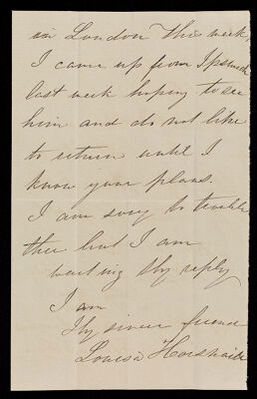 in London this week,
I came up from Ipswich
last week hoping to see
him and do not like
to return until I
know your plans.
I am sorry to trouble
thee but I am
waiting thy reply
I am
Thy sincere friend
Louisa